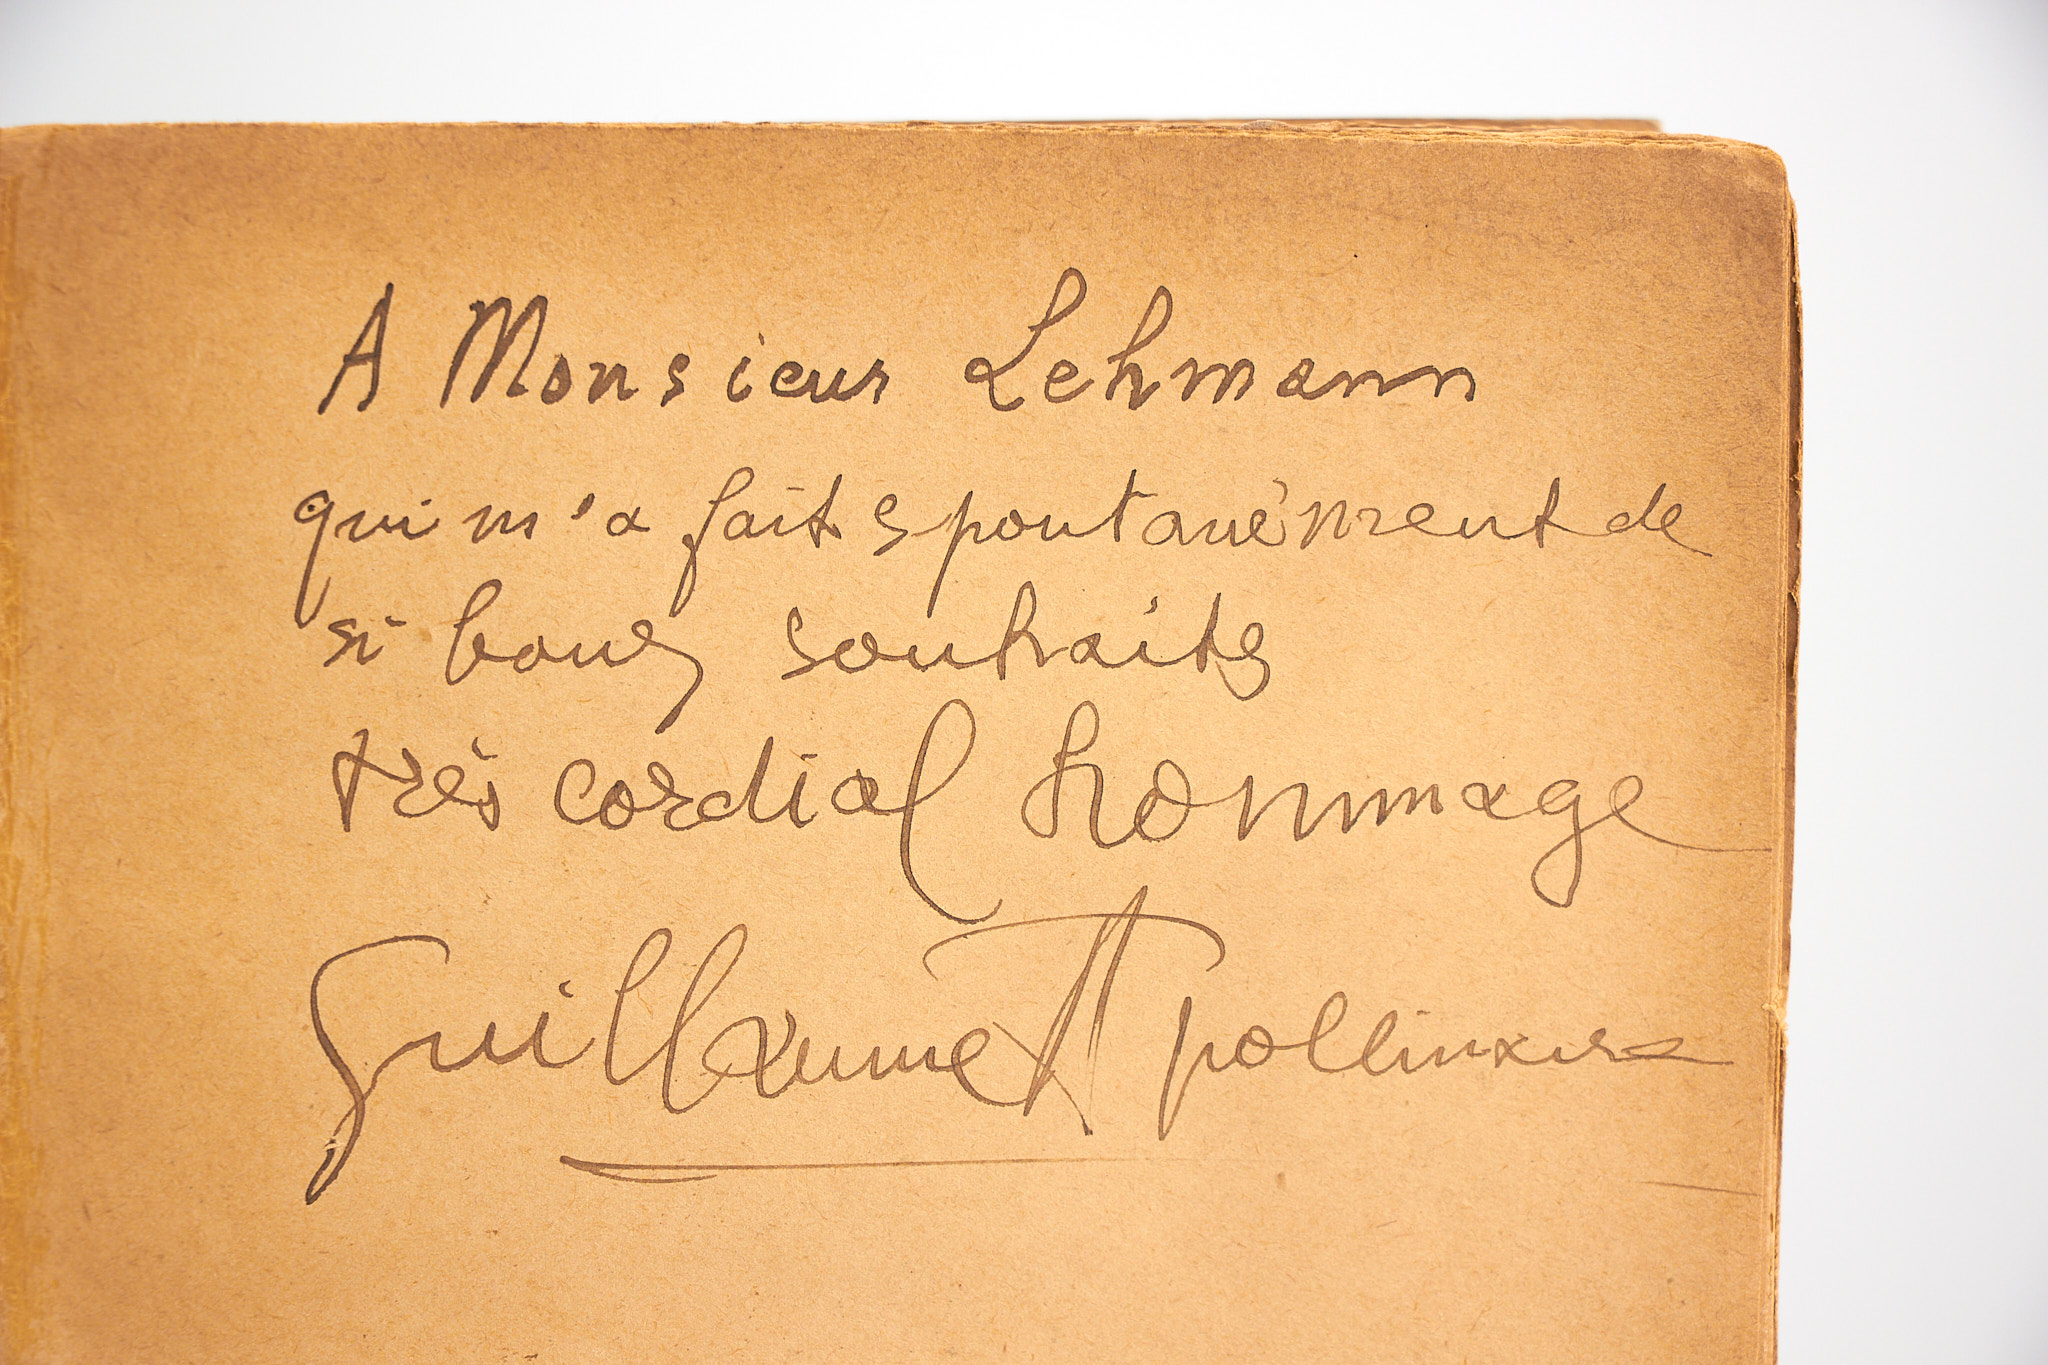 A Monsieur Lehmann
qui m'a fait spontanément de
si bons souhaits
très cordial hommage
Guillaume Apollinaire